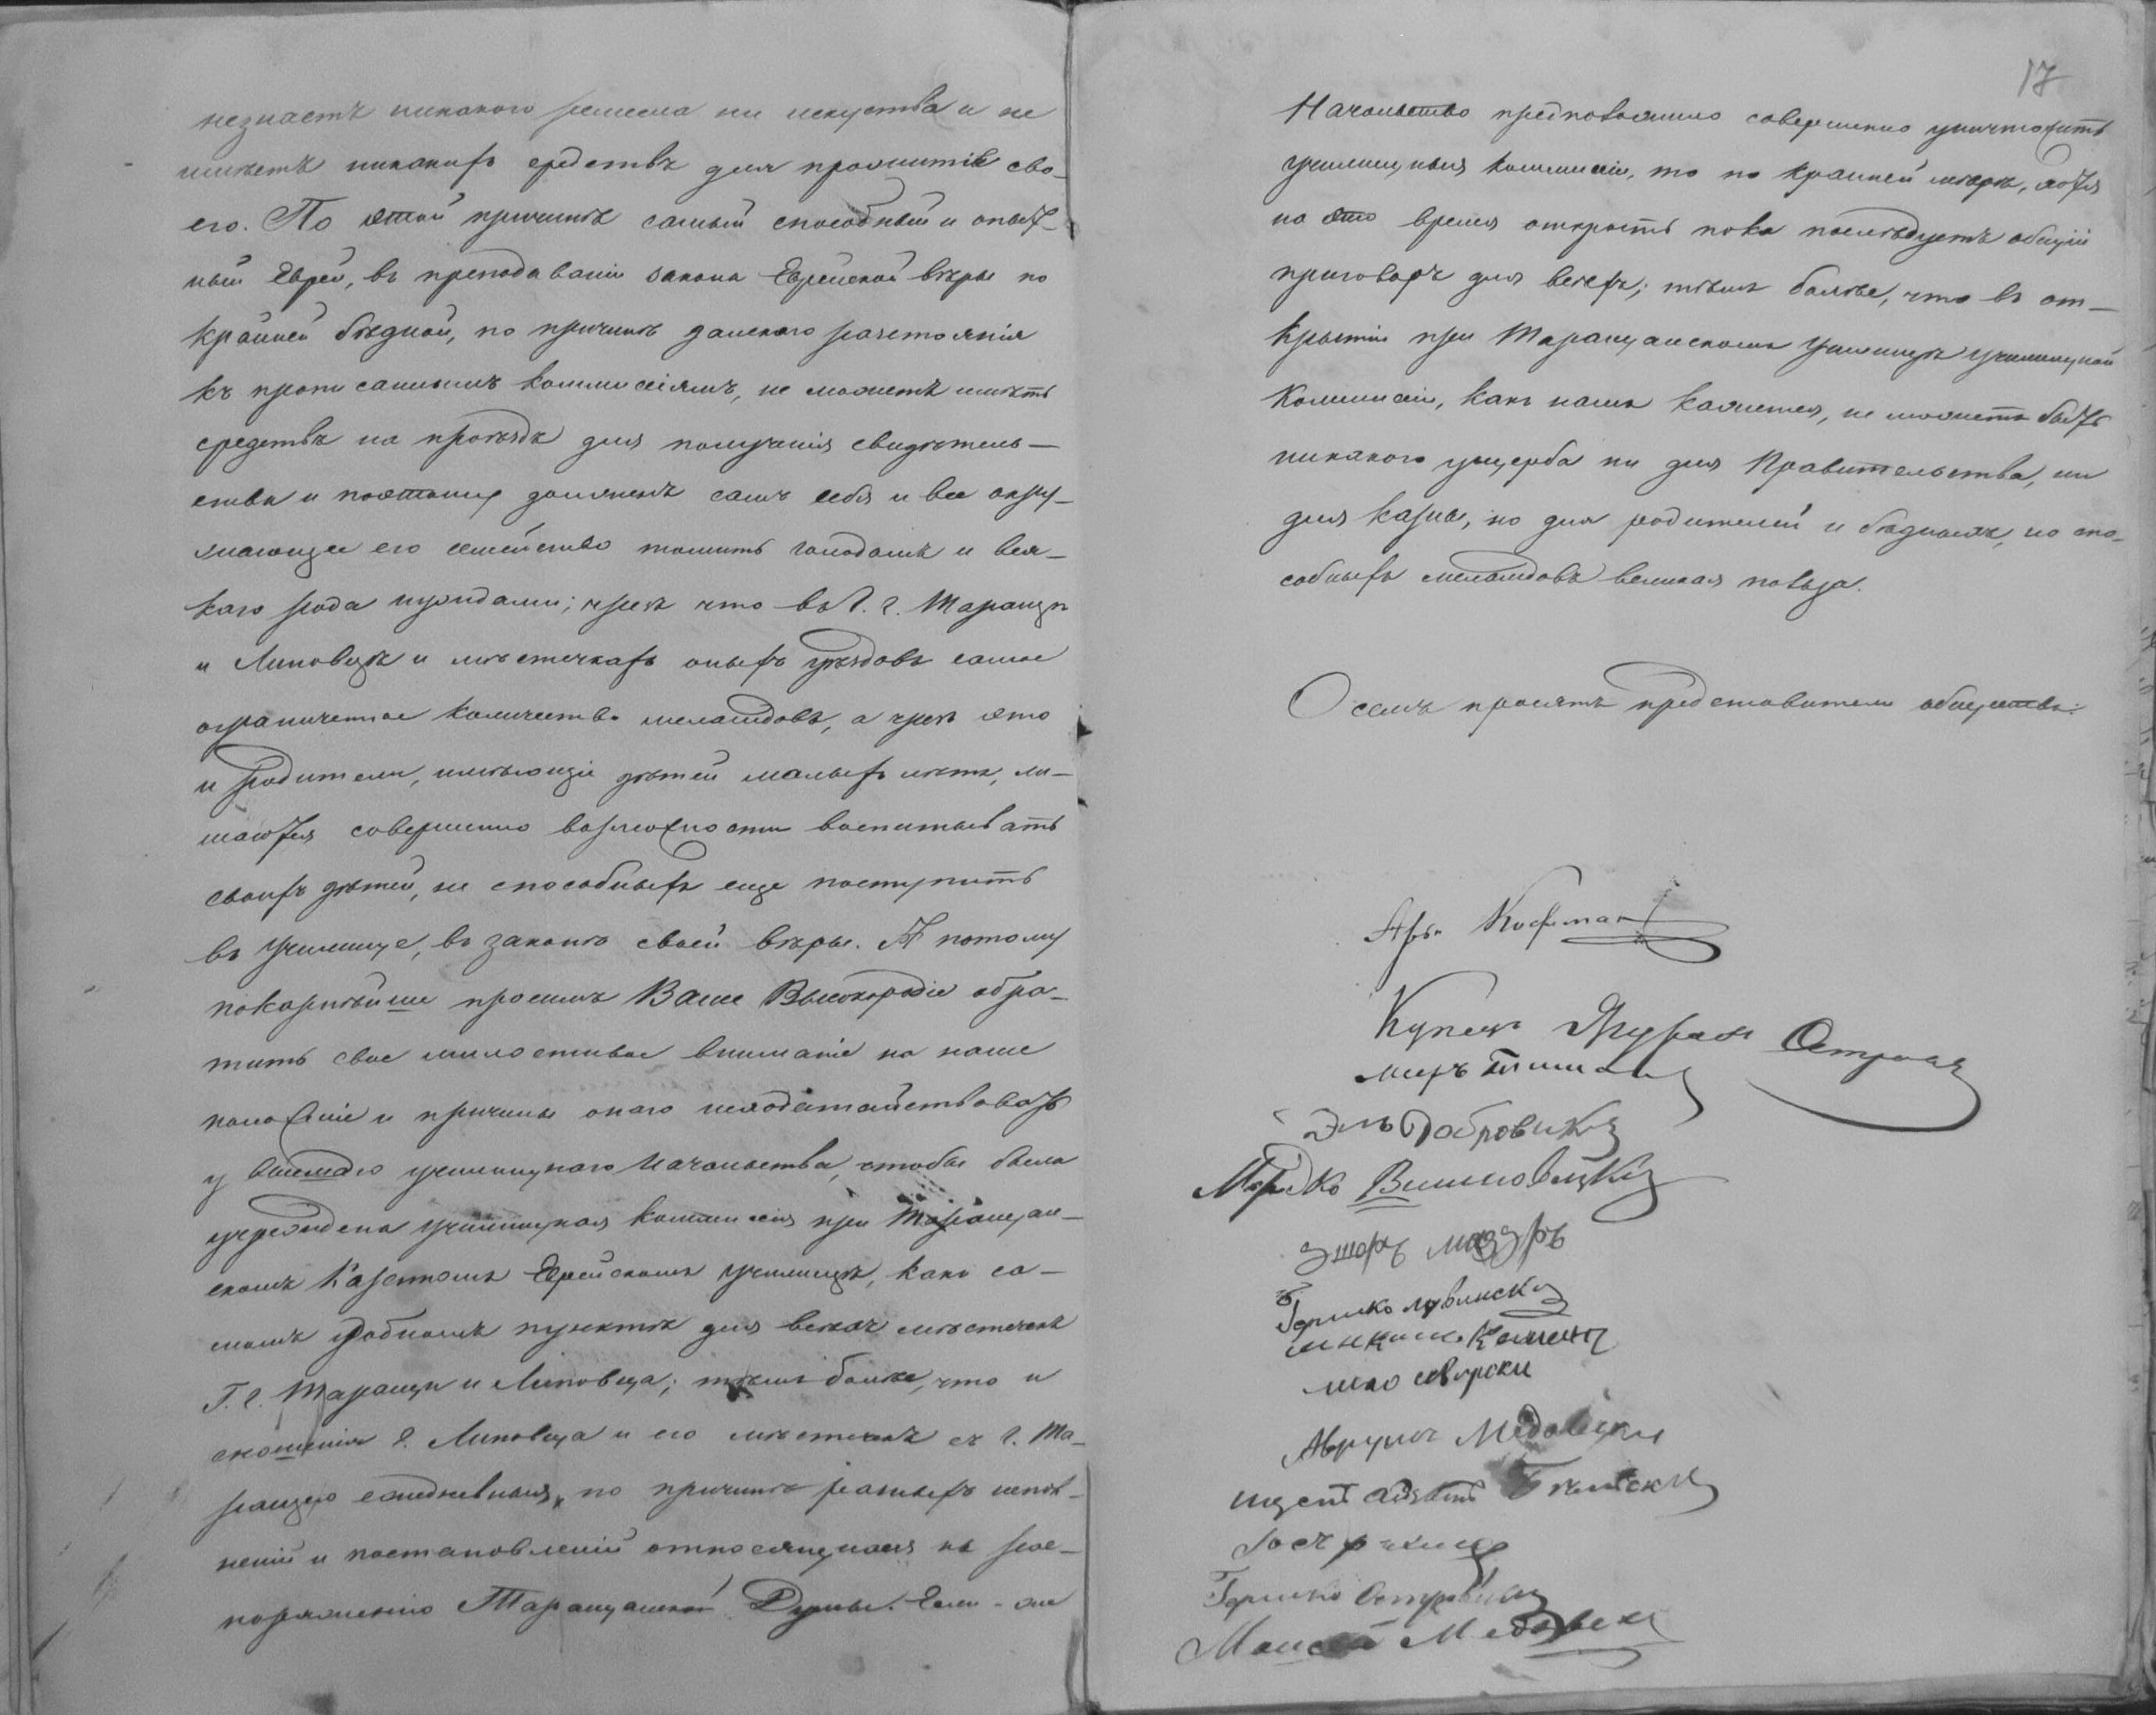 незнаетъ никакого ремесла ни искуства и не
имѣетъ никакихъ средствъ для пропитія сво-
его. По этой причинѣ самый способный и опыт-
ный Еврей, въ преподаваніи закона Еврейской вѣры но
крайней бѣдной, по причинѣ далекаго разстоянія
къ прописаннымъ коммисіямъ, не можетъ имѣть
средствъ на проѣздъ для полученія свидѣтель-
ства и поэтому долженъ самъ себя и все окру-
жающее его семейство томить голодомъ и вся-
каго рода нуждами; чрезъ что въ Г. г. Таращѣ
и Липовцѣ и мѣстечкахъ оныхъ уѣздовъ самое
ограниченное количество меламдовъ, а чрезъ это
и родители, имѣющіе дѣтей малыхъ лѣтъ, ли-
шаются совершенно возможности воспитывать
своихъ дѣтей, не способныхъ еще поступить
въ училище, въ законѣ своей вѣры. А потому
покорнѣйше просимъ Ваше Высокородіе обра-
тить свое милостивое вниманіе на наше
положеніе и причины онаго исходатайствовать
у высшаго училищнаго Начальства, чтобы была
учреждена училищная коммисія при Таращан-
скомъ Казенномъ Еврейскомъ училищѣ, какъ са-
момъ удобномъ пунктѣ для всѣхъ мѣстечекъ
Г. г. Таращи и Липовца; тѣмъ болѣе, что и
сношенія г. Липовца и его мѣстечекъ съ г. Та-
ращею ежедневныя, по причинѣ разныхъ
и постановленій относящихся къ рас-
поряженію Таращанской Думы. Если-же
17
Начальство предположило совершенно уничтожить
училищныя коммисіи, то по крайней мѣрѣ, хотя
на это время открыть пока послѣдуетъ общій
приговоръ для всѣхъ; тѣмъ болѣе, что въ от-
крытіи при Таращанскомъ Училищѣ училищной
Коммисіи, какъ намъ кажется, не можетъ быть
никакого ущерба ни для Правительства, ни
для казны, но для родителей и бѣдныхъ, но спо-
собныхъ меламдовъ великая польза.
О семъ просятъ представители общества:
Кофман
Купецъ
меръ
Эль Добровски
Мордко Вишновецкій
мазуръ
Гершко
Аврумъ Медовски
Гершко
Моисей